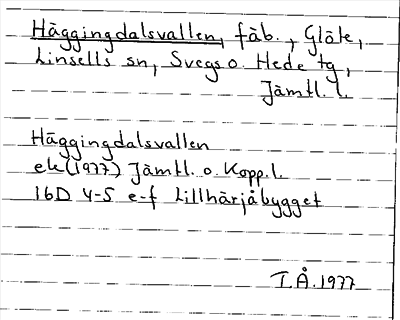 Häggingdalsvallen, fäb., Glöte,
Linsells sn, Svegs o. Hede tg,
Jämtl. l.
Häggingdalsvallen
ek (1977) Jämtl. o. Kopp. l.
16D 4-5 e-f Lillhärjåbygget
T.Å. 1977